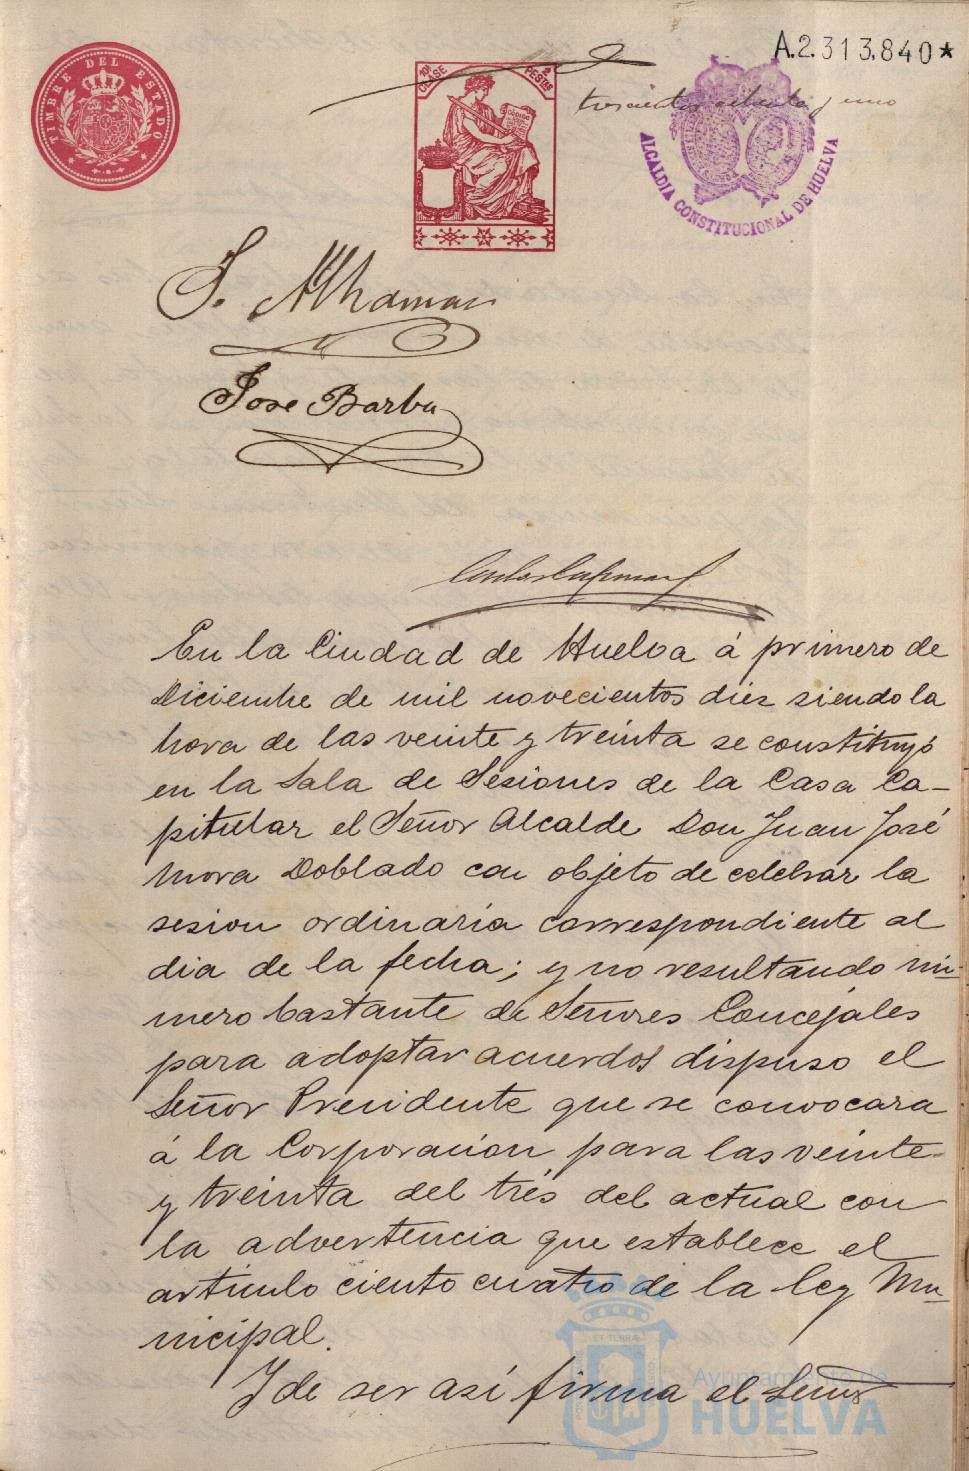 A.2.313.840*
TIMBRE DEL ESTADO
10ª CLASE
2 PESTAS
trescientos ochenta y uno
ALCALDIA CONSTITUCIONAL DE HUELVA
J. Alhamar
Jose Barba
En la Ciudad de Huelva á primero de
Diciembre de mil novecientos diez siendo la
hora de las veinte y treinta se constituyó
en la Sala de Sesiones de la Casa Ca-
pitular el Señor Alcalde Don Juan José
Mora Doblado con objeto de celebrar la
sesion ordinaria correspondiente al
dia de la fecha; y no resultando nú-
mero bastante de Señores Concejales
para adoptar acuerdos dispuso el
Señor Presidente que se convocara
á la Corporación para las veinte
y treinta del trés del actual con
la advertencia que establece el
artículo ciento cuatro de la ley Mu-
nicipal.
Y de ser así firma el Señor
Ayuntamiento de
HUELVA